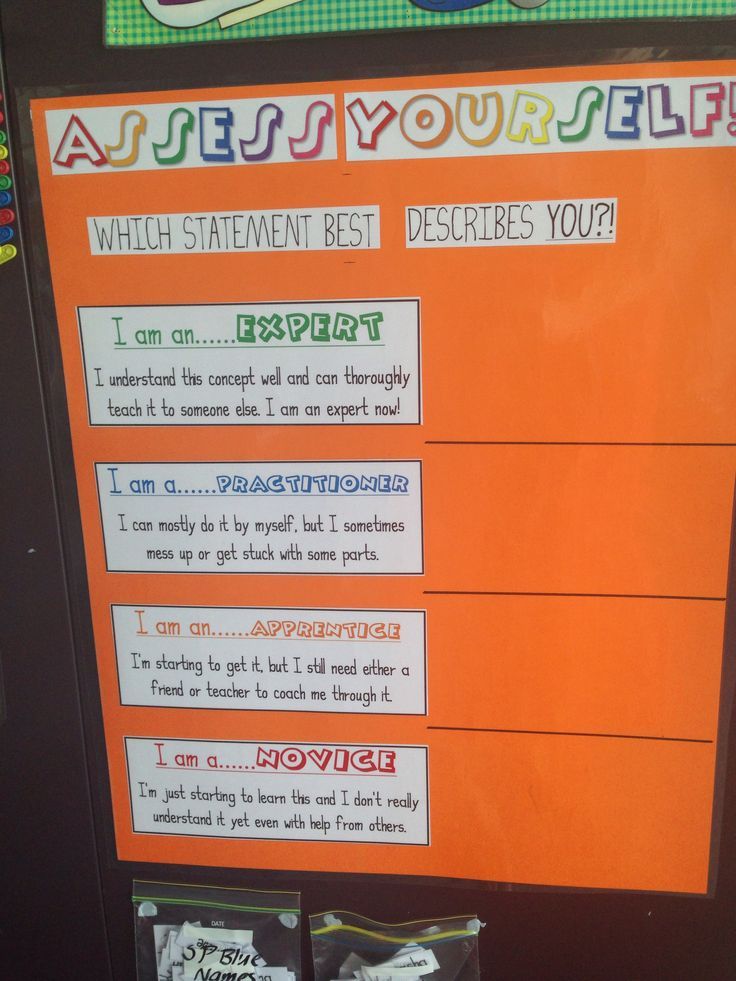 ASSESS YOURSELF!
WHICH STATEMENT BEST DESCRIBES YOU?!
I am an......EXPERT
I understand this concept well and can thoroughly
teach it to someone else. I am an expert now!
I am a......PRACTITIONER
I can mostly do it by myself, but I sometimes
mess up or get stuck with some parts.
I am an......APPRENTICE
I'm starting to get it, but I still need either a
friend or teacher to coach me through it.
I am a......NOVICE
I'm just starting to learn this and I don't really
understand it yet even with help from others.
DATE
SP Blue
Names